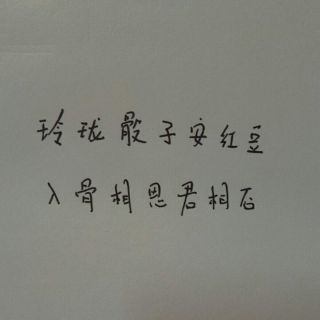 玲珑骰子安红豆
入骨相思君相